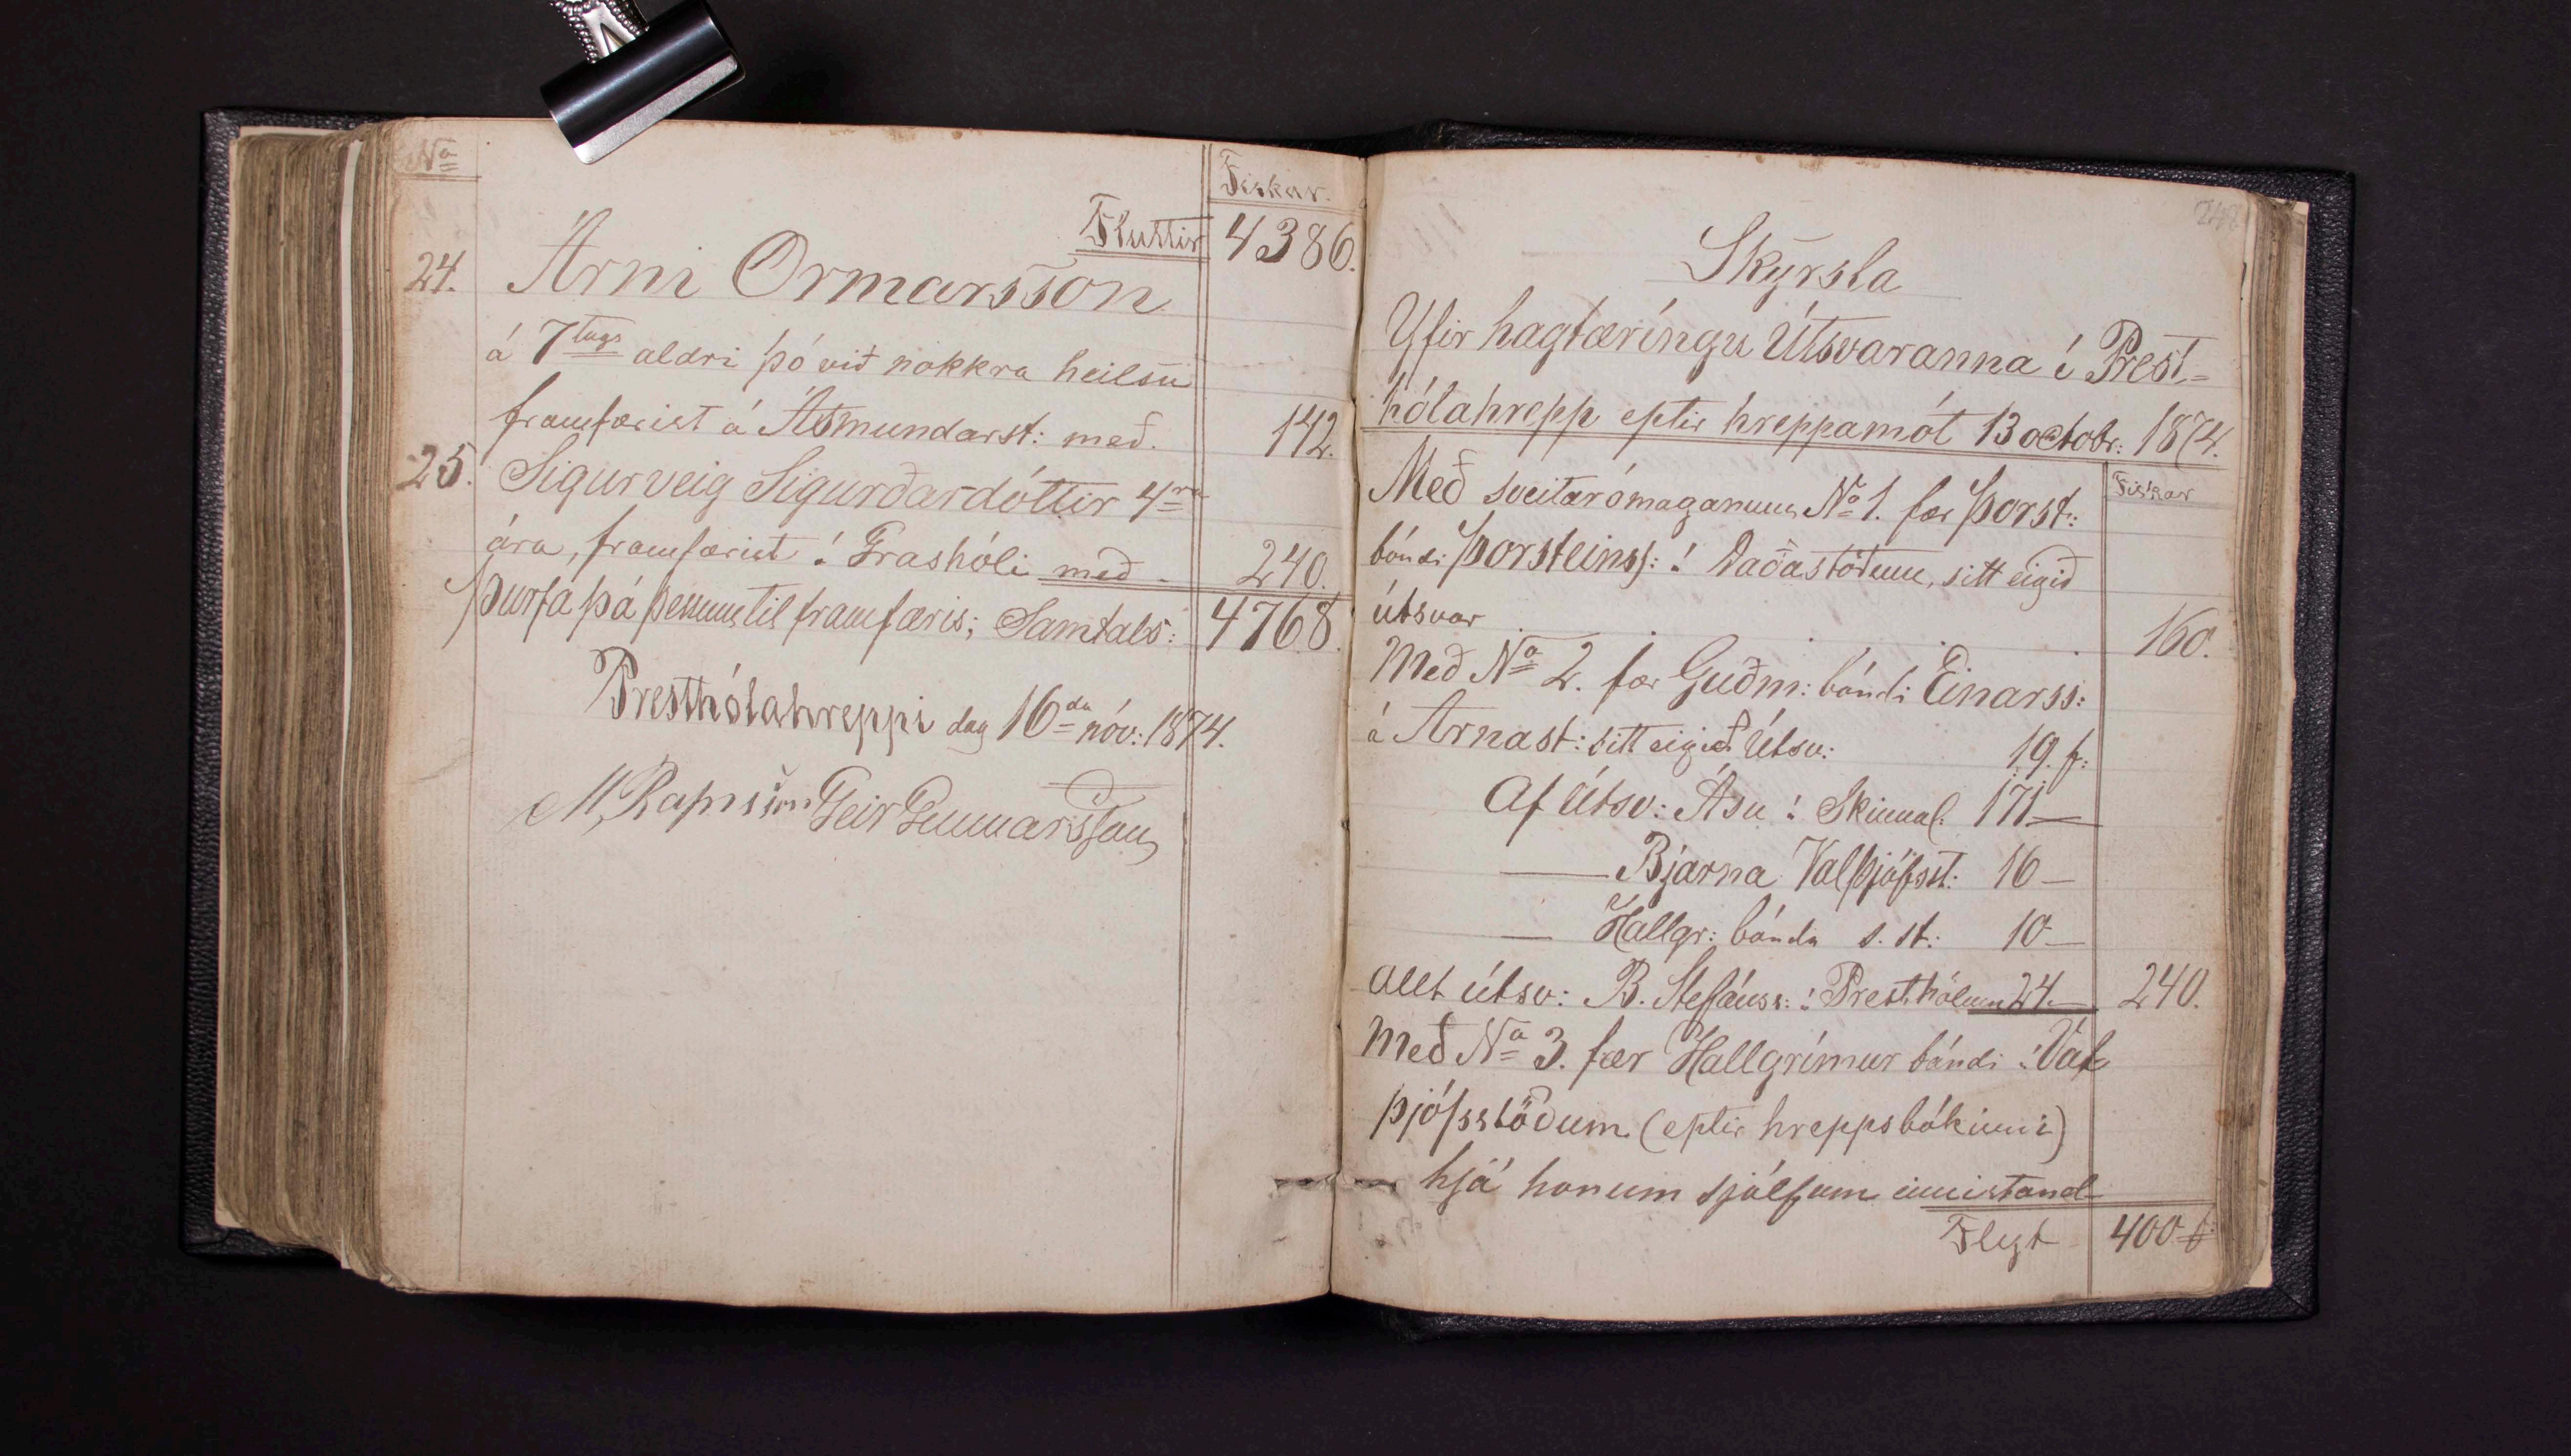 Nº
Fiskar.
Fluttir 4386.
24. Árni Ormarsson
á 7tugs aldri þó við nokkra heilsu
framfærist á Ásmundarst: með. 142.
25. Sigurveig Sigurðardóttir 4ra
ára, framfærist í Grashóli með - 240.
þurfa þá þessum til framfæris; Samtals: 4768.
Presthólahreppi dag 16da nóv: 1874.
M, Rapnsson Geir Gunnarsson
248
Skýrsla
Yfir hagtæríngu Útsvaranna í Prest-
hólahrepp eptir hreppamót 13 octobr: 1874.
Fiskar
Með sveitarómaganum Nº 1. fær Þorst:
bóndi Þorsteinss: í Daðastöðum, sitt eigið
útsvar 160.
Með Nº 2. fær Guðm: bóndi Einarss:
á Arnast: sitt eigið Útsv: 19. f:
Af Útsv: Ásu í Skinnal: 171 —
— Bjarna Valþjófsst: 16 —
— Hallgr: bónda s. st: 10 —
Allt útsv: B. Stefánss: í Presthólum 24. — 240.
Með Nº 3. fær Hallgrímur bóndi í Val
þjófsstöðum (eptir hreppsbókinni)
hjá honum sjálfum innistand-
Flyt 400 f: